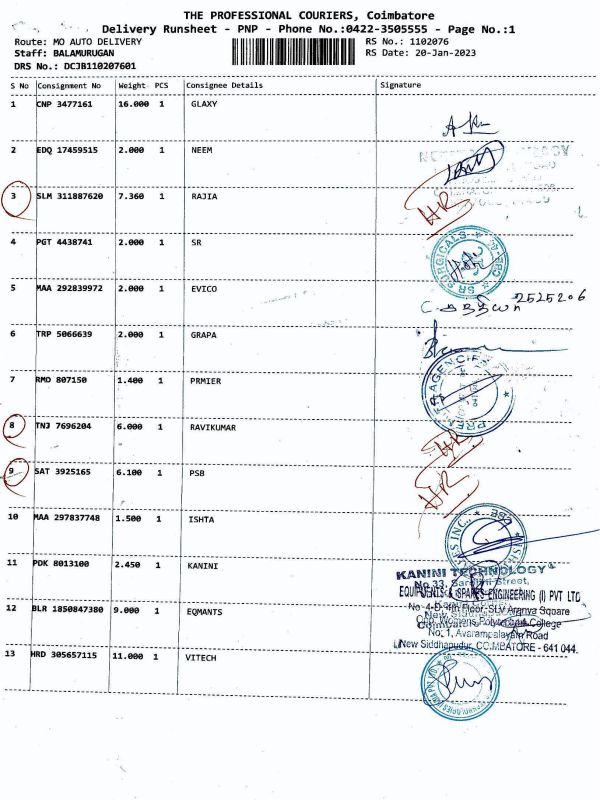 THE PROFESSIONAL COURIERS, Coimbatore
Delivery Runsheet - PNP - Phone No.:0422-3505555 - Page No.:1
Route: MO AUTO DELIVERY RS No.: 1102076
Staff: BALAMURUGAN RS Date: 20-Jan-2023
DRS No.: DCJB110207601
S No Consignment No Weight PCS Consignee Details Signature
1 CNP 3477161 16.000 1 GLAXY
2 EDQ 17459515 2.000 1 NEEM
3 SLM 311887620 7.360 1 RAJIA
HR
4 PGT 4438741 2.000 1 SR
SR SURGICALS
5 MAA 292839972 2.000 1 EVICO
2525206
6 TRP 5066639 2.000 1 GRAPA
7 RMO 807150 1.400 1 PRMIER
8 TNJ 7696204 6.000 1 RAVIKUMAR
HR
9 SAT 3925165 6.100 1 PSB
HR
10 MAA 297837748 1.500 1 ISHTA
11 PDK 8013100 2.450 1 KANINI
KANINI TECHNOLOGY
No 33, Street,
EQUIPMENTS & SPARES ENGINEERING (I) PVT LTD
12 BLR 1850847380 9.000 1 EQMANTS
No 4-B, 4th Floor, Square
Opp. Womens Polytechnic College
No. 1, Avarampalayam Road
New Siddhapudur, COIMBATORE - 641 044.
13 HRD 305657115 11.000 1 VITECH